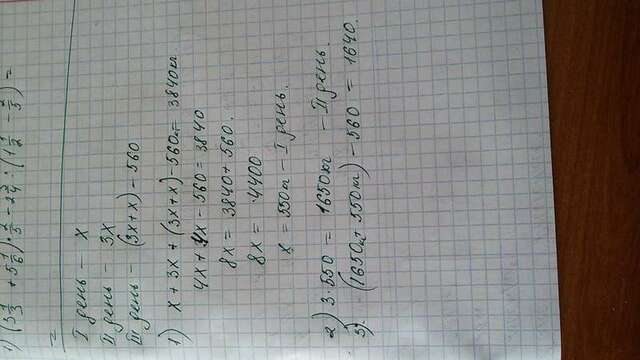 1) (3 1/3 + 5 1/6) · 2/5 - 2 3/4 : (1 1/2 - 2/5) =
=
I день - x
II день - 3x
III день - (3x+x) - 560
1) x + 3x + (3x+x) - 560кг = 3840кг.
4x + 4x - 560 = 3840
8x = 3840 + 560.
8x = 4400
x = 550кг - I день.
2) 3·550 = 1650кг - II день.
3) (1650кг + 550кг) - 560 = 1640.